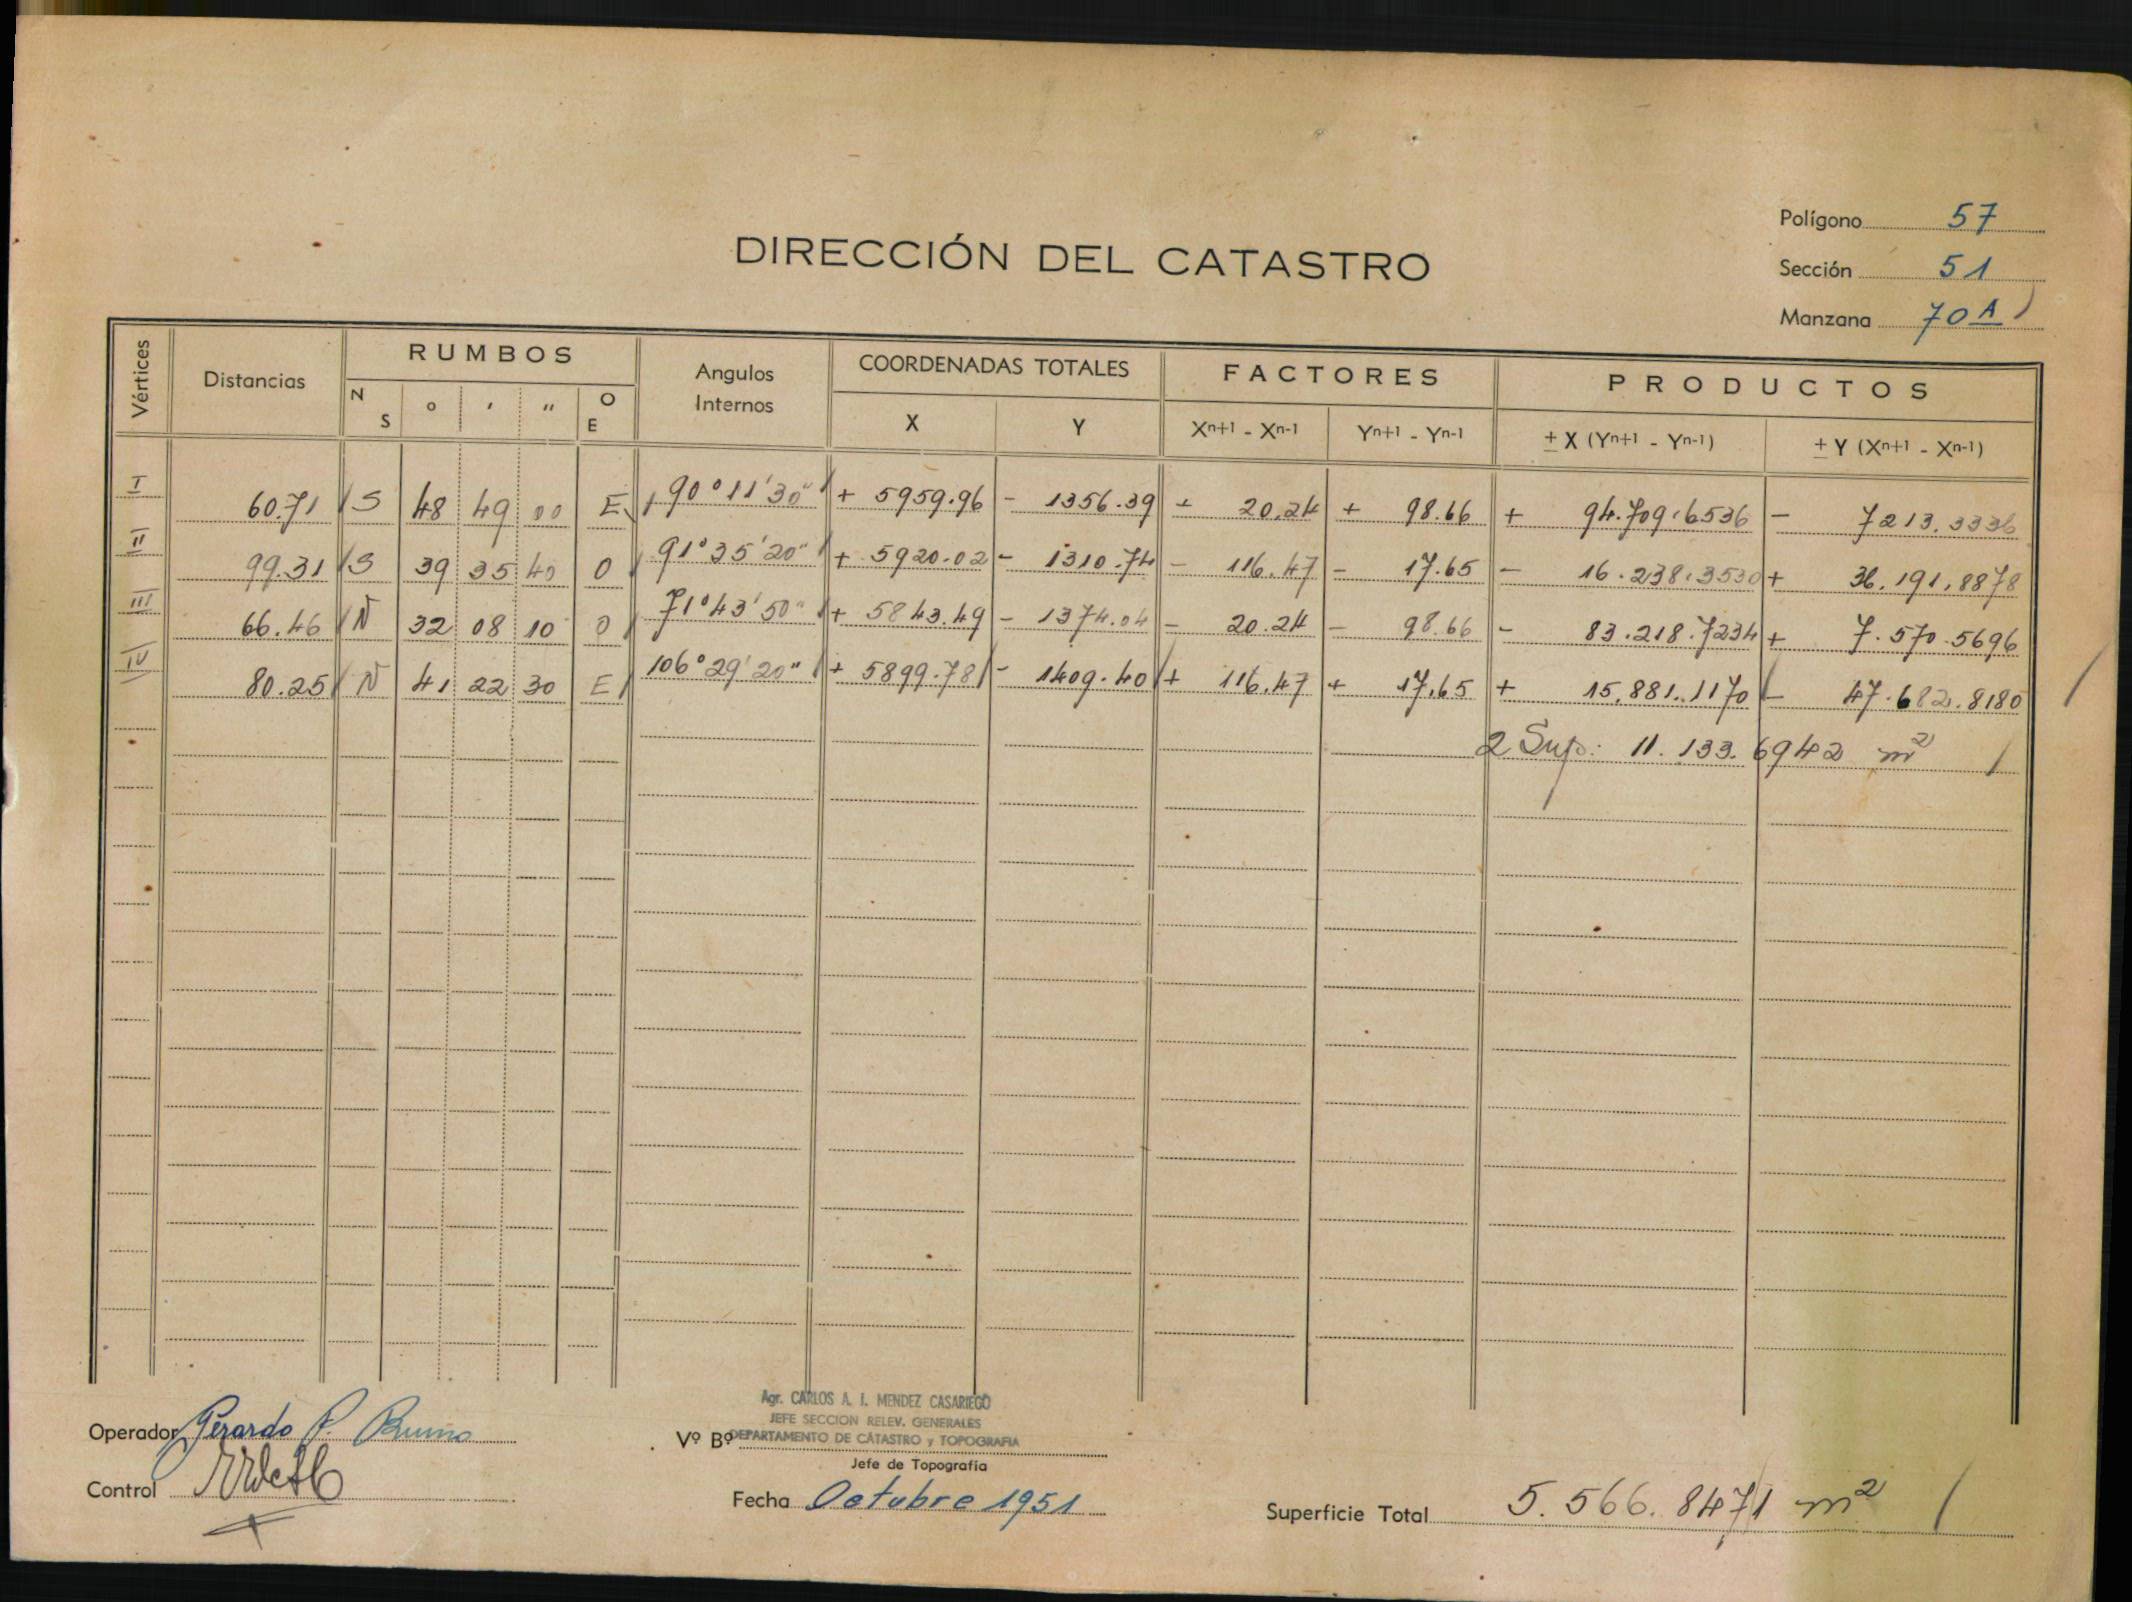 Polígono 57
DIRECCIÓN DEL CATASTRO
Sección 51
Manzana 70 A
Vértices Distancias RUMBOS Angulos Internos COORDENADAS TOTALES FACTORES PRODUCTOS
N S ° ' " O E X Y Xⁿ⁺¹ - Xⁿ⁻¹ Yⁿ⁺¹ - Yⁿ⁻¹ ± X (Yⁿ⁺¹ - Yⁿ⁻¹) ± Y (Xⁿ⁺¹ - Xⁿ⁻¹)
I 60.71 S 48 49 00 E 90°11'30" + 5959.96 - 1356.39 + 20.24 + 98.66 + 94.709.6536 - 7213.3336
II 99.31 S 39 35 40 O 91°35'20" + 5920.02 - 1310.74 - 116.47 - 17.65 - 16.238.3530 + 36.191.8878
III 66.46 N 32 08 10 O 71°43'50" + 5843.49 - 1374.04 - 20.24 - 98.66 - 83.218.7234 + 7.570.5696
IV 80.25 N 41 22 30 E 106°29'20" + 5899.78 - 1409.40 + 116.47 + 17.65 + 15.881.1170 - 47.682.8180
2 Sup.: 11.133.6942 m²
Agr. CARLOS A. I. MENDEZ CASARIEGO
JEFE SECCION RELEV. GENERALES
DEPARTAMENTO DE CATASTRO y TOPOGRAFIA
Operador Gerardo P. Bruno
Vº Bº
Jefe de Topografía
Control
Fecha Octubre 1951
Superficie Total 5.566.8471 m²